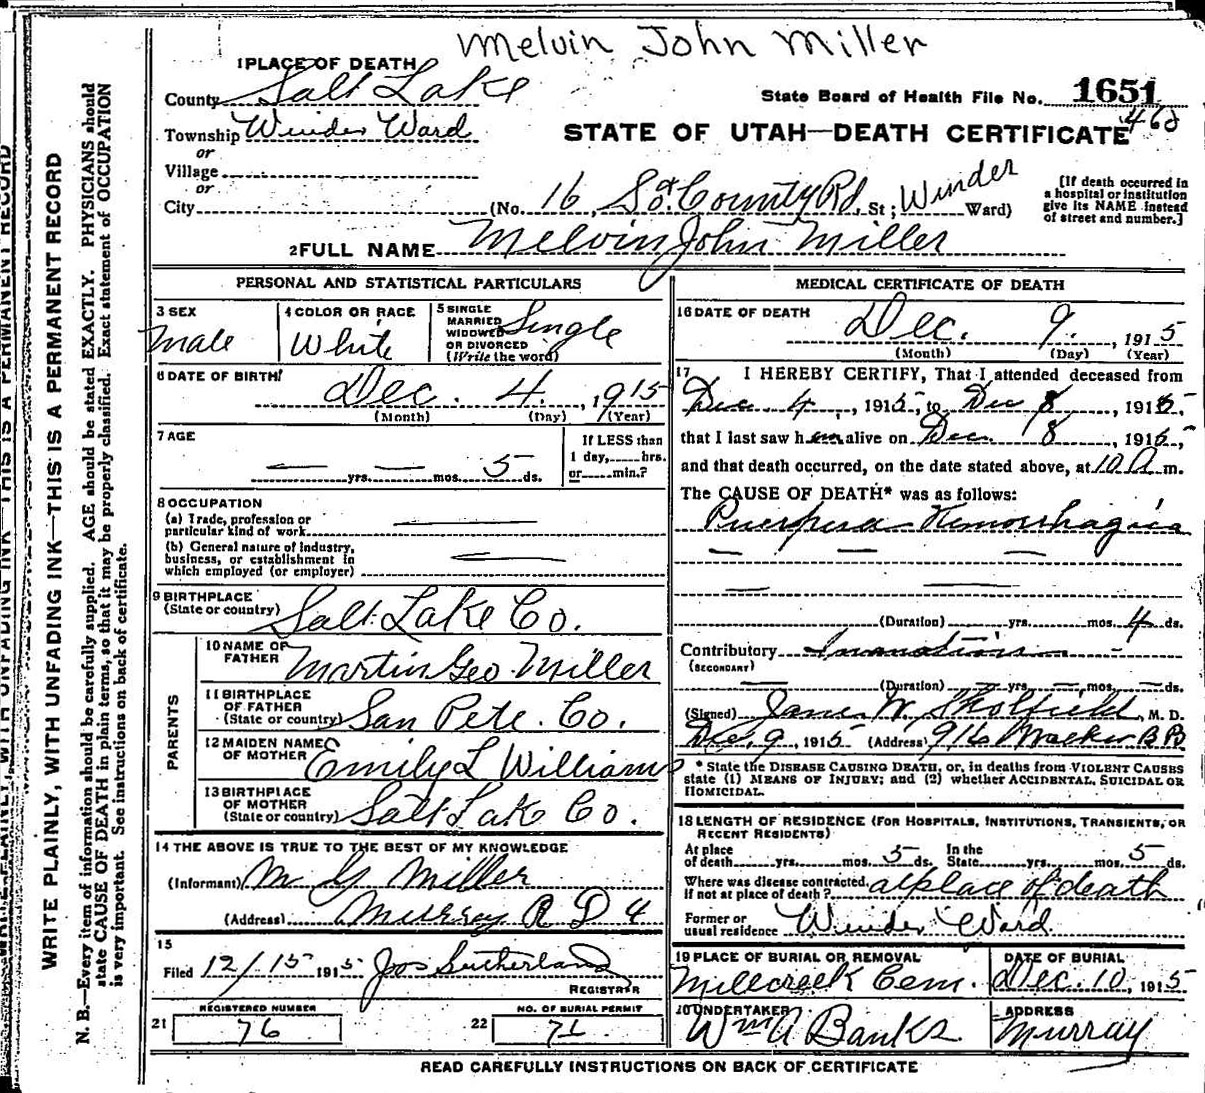 Melvin John Miller
1 PLACE OF DEATH
County Salt Lake
State Board of Health File No. 1651
Township Winder Ward
STATE OF UTAH—DEATH CERTIFICATE
or
Village
or
City
(No. 16, So. County Rd. St; Winder Ward)
[If death occurred in a hospital or institution give its NAME instead of street and number.]
2 FULL NAME Melvin John Miller
PERSONAL AND STATISTICAL PARTICULARS
3 SEX
Male
4 COLOR OR RACE
White
5 SINGLE
MARRIED
WIDOWED
OR DIVORCED
(Write the word)
Single
6 DATE OF BIRTH
Dec. 4, 1915
(Month) (Day) (Year)
7 AGE
— yrs. — mos. 5 ds.
If LESS than
1 day, hrs.
or min.?
8 OCCUPATION
(a) Trade, profession or
particular kind of work —
(b) General nature of industry,
business, or establishment in
which employed (or employer) —
9 BIRTHPLACE
(State or country) Salt Lake Co.
PARENTS
10 NAME OF
FATHER Martin Geo Miller
11 BIRTHPLACE
OF FATHER
(State or country) San Pete. Co.
12 MAIDEN NAME
OF MOTHER Emily L Williams
13 BIRTHPLACE
OF MOTHER
(State or country) Salt Lake Co.
14 THE ABOVE IS TRUE TO THE BEST OF MY KNOWLEDGE
(Informant) M G Miller
(Address) Murray R D 4
15
Filed 12/15 1915 Jos Sutherland
REGISTRAR
REGISTERED NUMBER
21 76
NO. OF BURIAL PERMIT
22
MEDICAL CERTIFICATE OF DEATH
16 DATE OF DEATH
Dec. 9, 1915
(Month) (Day) (Year)
17 I HEREBY CERTIFY, That I attended deceased from
Dec 4, 1915, to Dec 8, 1915,
that I last saw him alive on Dec 8, 1915,
and that death occurred, on the date stated above, at 10 A m.
The CAUSE OF DEATH* was as follows:
Hemorrhagica
— — —
— —
(Duration) yrs. mos. 4 ds.
Contributory Inanation —
(SECONDARY)
— (Duration) — yrs. — mos. — ds.
(Signed) Jane W. Skolfield, M. D.
Dec. 9, 1915 (Address) 916 Walker
* State the DISEASE CAUSING DEATH, or, in deaths from VIOLENT CAUSES
state (1) MEANS OF INJURY; and (2) whether ACCIDENTAL, SUICIDAL OR
HOMICIDAL.
18 LENGTH OF RESIDENCE (FOR HOSPITALS, INSTITUTIONS, TRANSIENTS, OR
RECENT RESIDENTS)
At place
of death yrs. mos. 5 ds. In the
State yrs. mos. 5 ds.
Where was disease contracted,
if not at place of death? at place of death
Former or
usual residence Winder Ward
19 PLACE OF BURIAL OR REMOVAL
Millcreek Cem.
DATE OF BURIAL
Dec. 10, 1915
20 UNDERTAKER
Wm A Banks
ADDRESS
Murray
READ CAREFULLY INSTRUCTIONS ON BACK OF CERTIFICATE
WRITE PLAINLY, WITH UNFADING INK—THIS IS A PERMANENT RECORD
N. B.—Every item of information should be carefully supplied. AGE should be stated EXACTLY. PHYSICIANS should
state CAUSE OF DEATH in plain terms, so that it may be properly classified. Exact statement of OCCUPATION
is very important. See instructions on back of certificate.